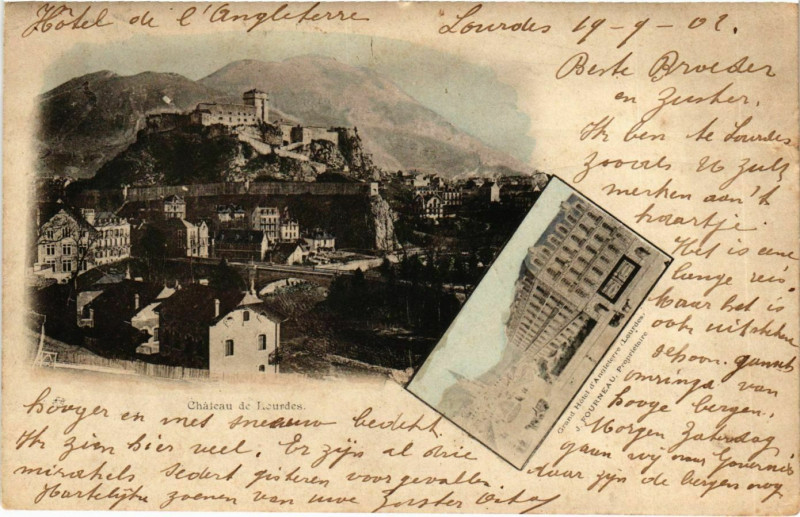 Hôtel de l'Angleterre
Lourdes 19-9-02.
Beste Broeder
en Zuster.
Ik ben te Lourdes
zooals U zult
merken aan 't
kaartje.
Het is eene
lange reis.
Maar het is
ook uitstekend
schoon. gansch
omringd van
hooge bergen.
Morgen Zaterdag
gaan wij naar
daar zijn de bergen nog
hooger en met sneeuw bedekt
Ik zien hier veel. Er zijn al drie
mirakels sedert gisteren voorgevallen.
Hartelijke zoenen van uwe Zuster
Château de Lourdes.
Grand Hôtel d'Angleterre (Lourdes)
J. FOURNEAU, Propriétaire